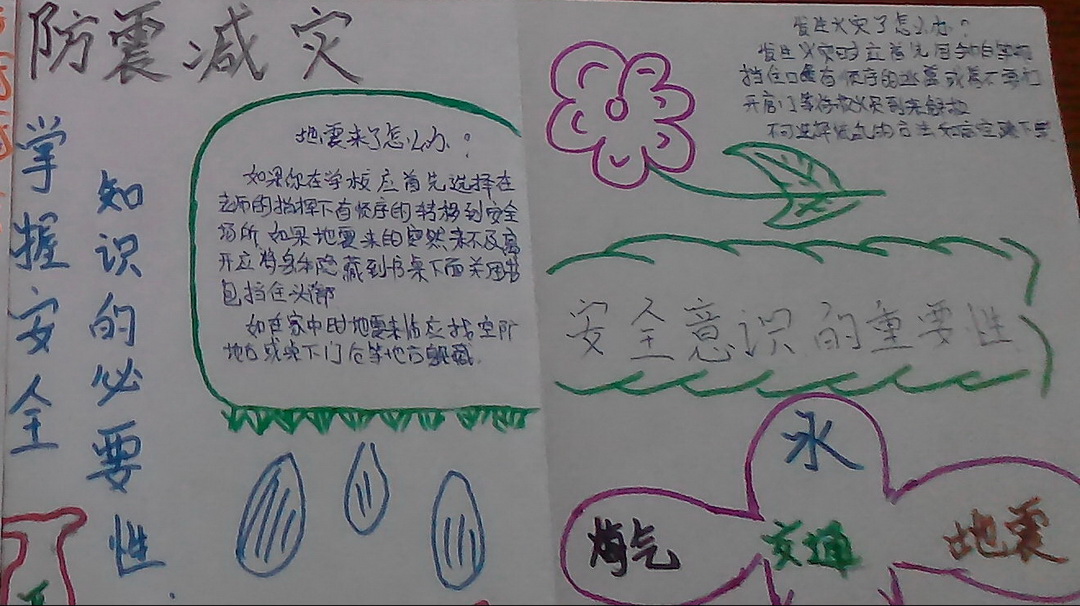 防震减灾
掌握安全
知识的必要性
地震来了怎么办?
如果你在学校应首先选择在
老师的指挥下有顺序的转移到安全
场所如果地震来的突然来不及离
开应将身体隐藏到书桌下面并用书
包挡住头部
如在家中时地震来临应找空阔
地台或桌下门仓等地方躲藏
发生火灾了怎么办?
发生火灾时应首先用
挡住口鼻有顺序的
开启门等待救火员到来解救
不可选择慌乱的方法如高空跳下等
安全意识的重要性
水
煤气
交通
地震